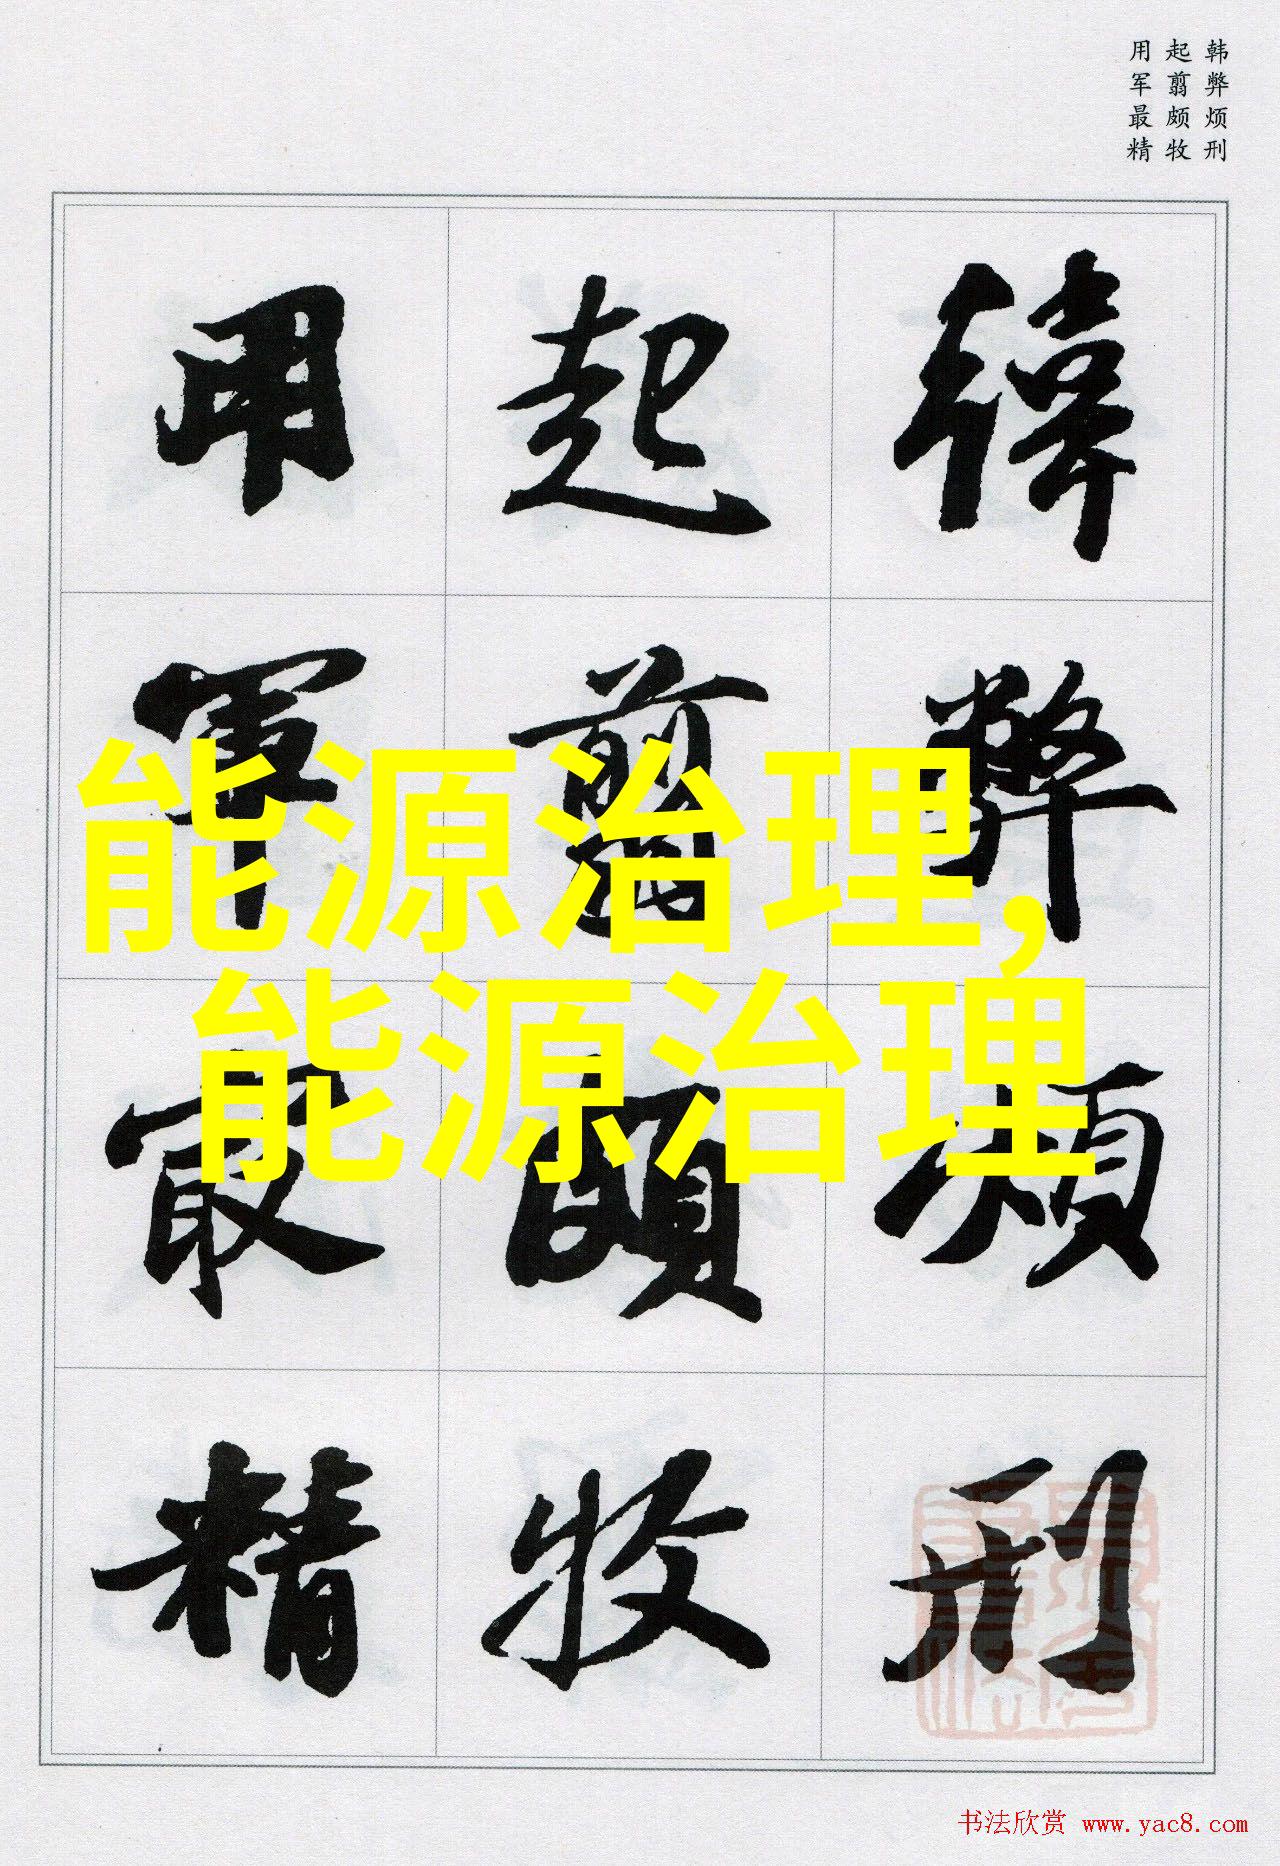 韩弊烦刑
起翦颇牧
用军最精
韓弊煩刑
起翦頗牧
用軍最精
能源治理,
能源治理
书法欣赏 www.yac8.com